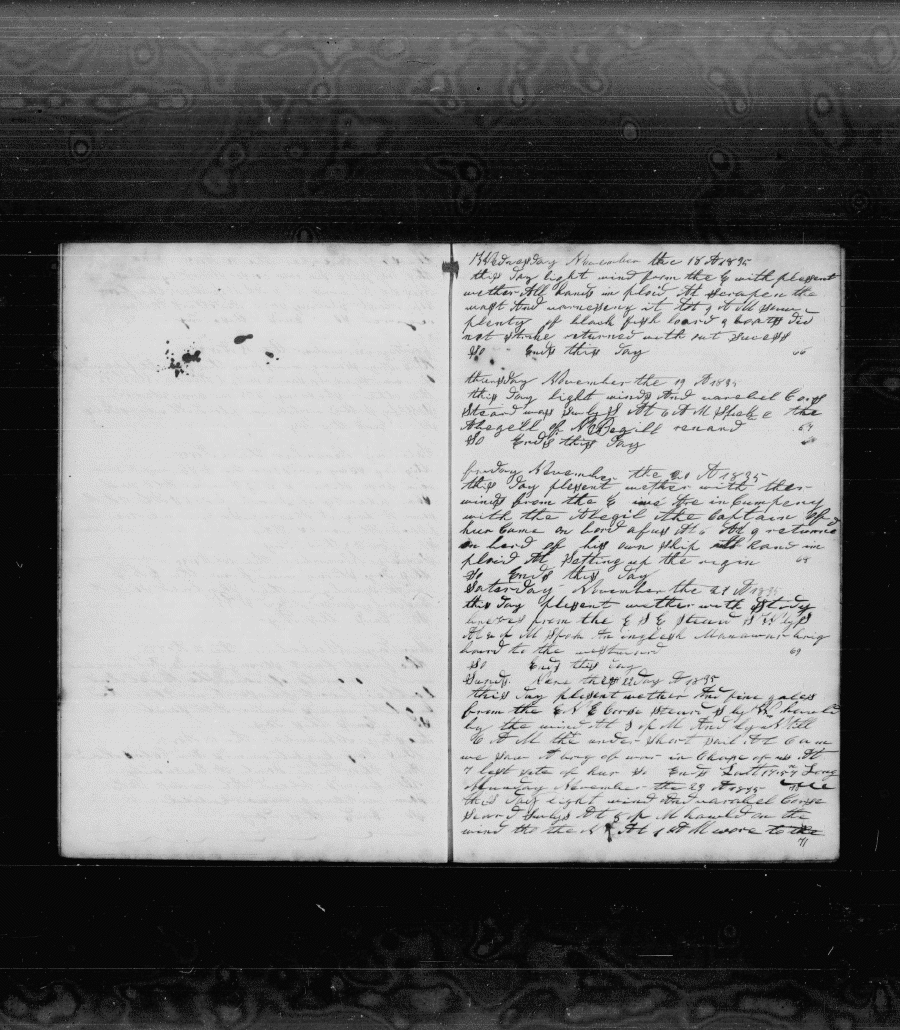 Wednesday November the 18 A 1835
this day light wind from the E with plesent
wether All hands in ploid At scrapen the
wast And varnessing it At 9 A M saw
plenty of black fish loard 9 boats did
not strike returned with out sucess
So Ends this day 66
thursday November the 19 A 1835
this day light winds And varebel Corse
Steard was by S At 6 A M Spoke the
Abegell of N Begill renard 67
So Ends this day
friday November the 20 A 1835
this day plesent wether with ther
winds from the E in Cumpeny
with the Abegil the Captain of
hur Came on bord of us At 6 At 9 returned
on bord of his own ship All hand in
ploid At setting up the regin 68
So Ends this day
Saturday November the 21 A 1835
this day plesent wether with Study
from the E S E Steard S W by S
P M Spoke An inglesh brig
bound to the westward 69
So Ends this day
the 22 day A 1835
this day plesent wether And fine gales
from the E N E Corse Steard S by W hauld
by the wind At 5 P M And
A M the under short sail At 6 a m
we saw A brig of wor in Chase of us At
7 lost site of hur So Ends Latt 17:57 Long
Munday November the 23 A 1835
this day light wind And varebel Corse
Steard At 5 P M hauld on the
wind to the N At 1 A M wore to the
71